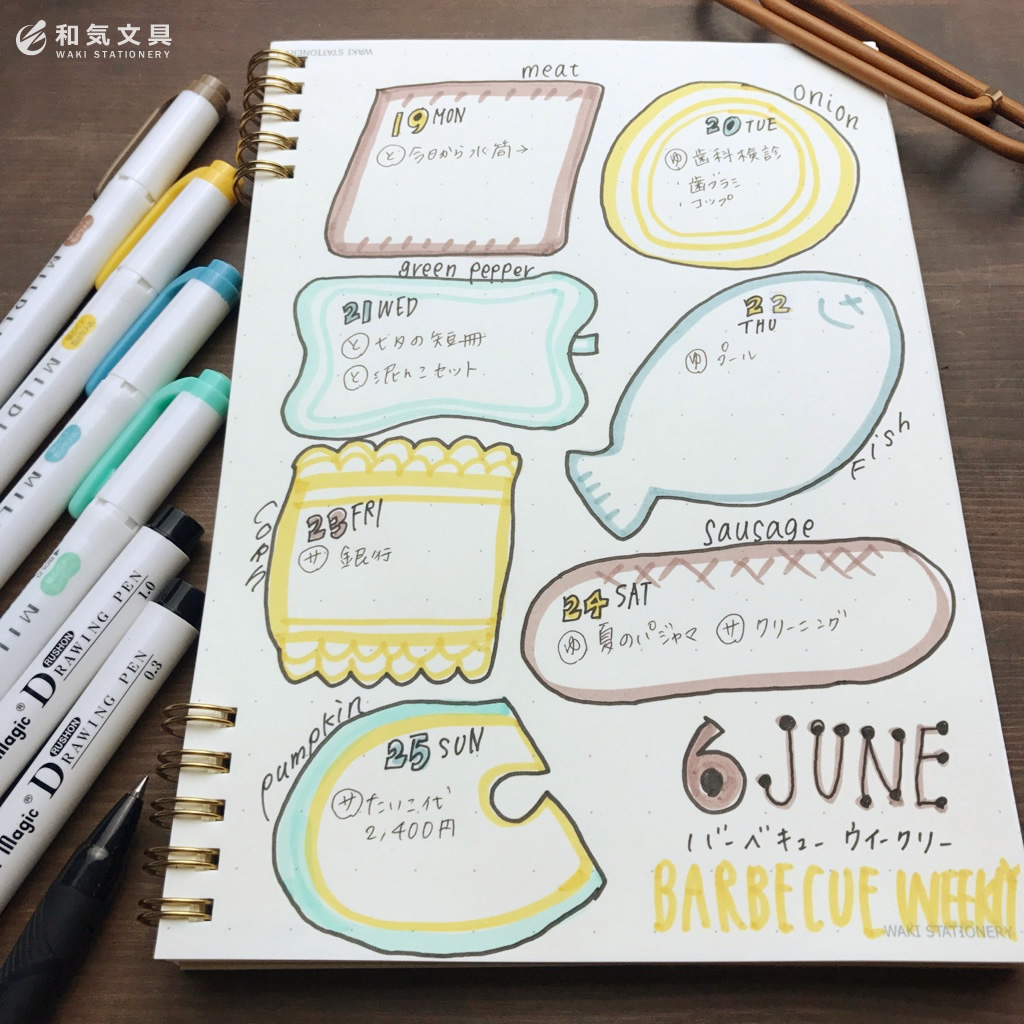 和気文具
WAKI STATIONERY
WAKI STATIONERY
meat
19 MON
と 今日から水筒→
onion
20 TUE
ゆ 歯科検診
・歯ブラシ
・コップ
green pepper
21 WED
と 七夕の短冊
と 泥んこセット
22
THU
ゆ プール
Fish
corn
23 FRI
サ 銀行
sausage
24 SAT
ゆ 夏のパジャマ サ クリーニング
pumpkin
25 SUN
サ たいこ代
2,400円
6.JUNE
バーベキュー ウイークリー
BARBECUE WEEKLY
WAKI STATIONERY
MILDLI
MILDLI
MIL
Magic® RUSHON DRAWING PEN 1.0
Magic® RUSHON DRAWING PEN 0.3